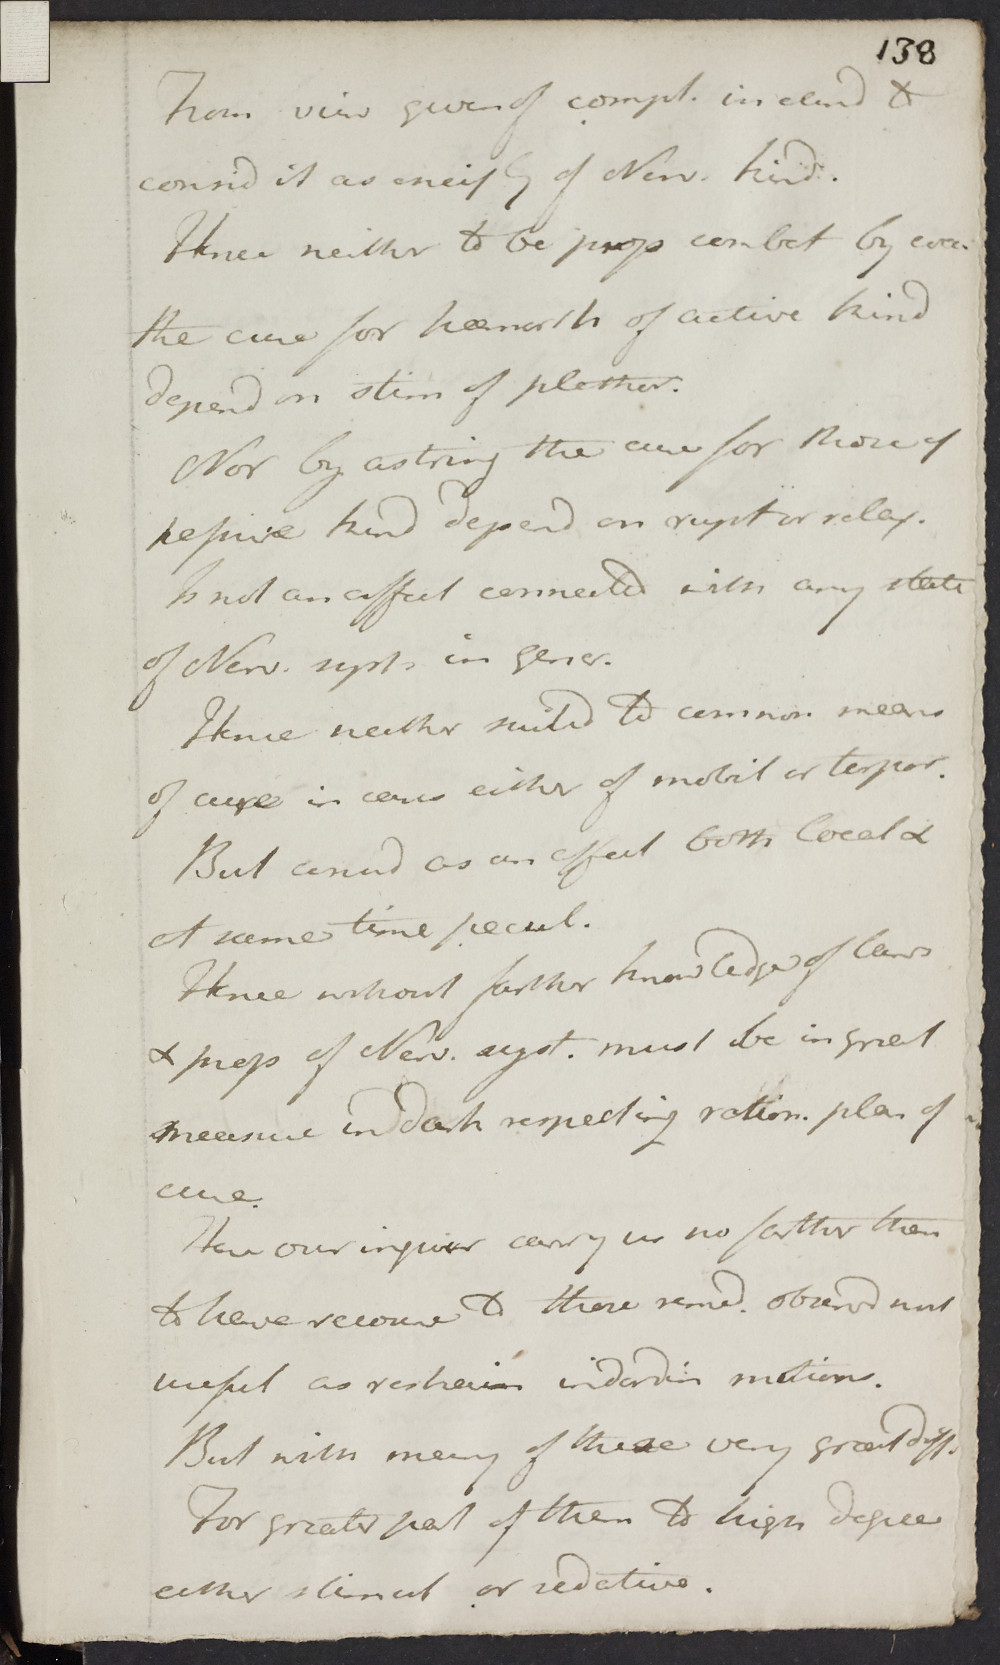 138
From view given of compl. inclind to
consid it as of Nerv. kind.
Hence neither to be prop combat by evac.
the cure for hæmorrh of active kind
depend on stim of plethor.
Nor by astring the cure for those of
passive kind depend on rupt or relax.
Is not an affect connected with any state
of Nerv. syst. in gener.
Hence neither suited to common means
of cure in cases either of mobil or torpor.
But consid as an affect both local &
at same time pecul.
Hence without farther knowledge of laws
& prop of Nerv. syst. must be in great
measure in dark respecting ration. plan of
cure.
Here our inquir carry us no farther than
to have recourse to those remed. observd most
useful as restrain inordin motions.
But with many of these very great diff.
For greater part of them to high degree
either stimul or sedative.